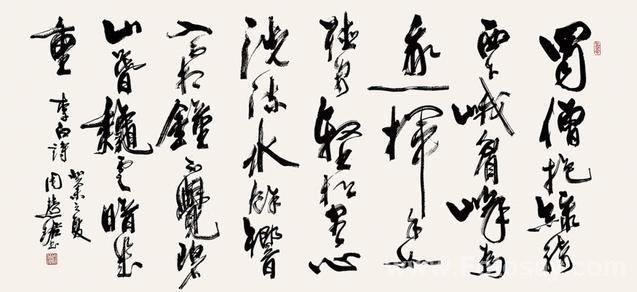 蜀僧抱綠綺
西下峨眉峰為
我一揮手如
聽萬壑松客心
洗流水餘響
入霜鐘不覺碧
山暮龝雲暗幾
重
李白詩 癸未之夏
周慧珺